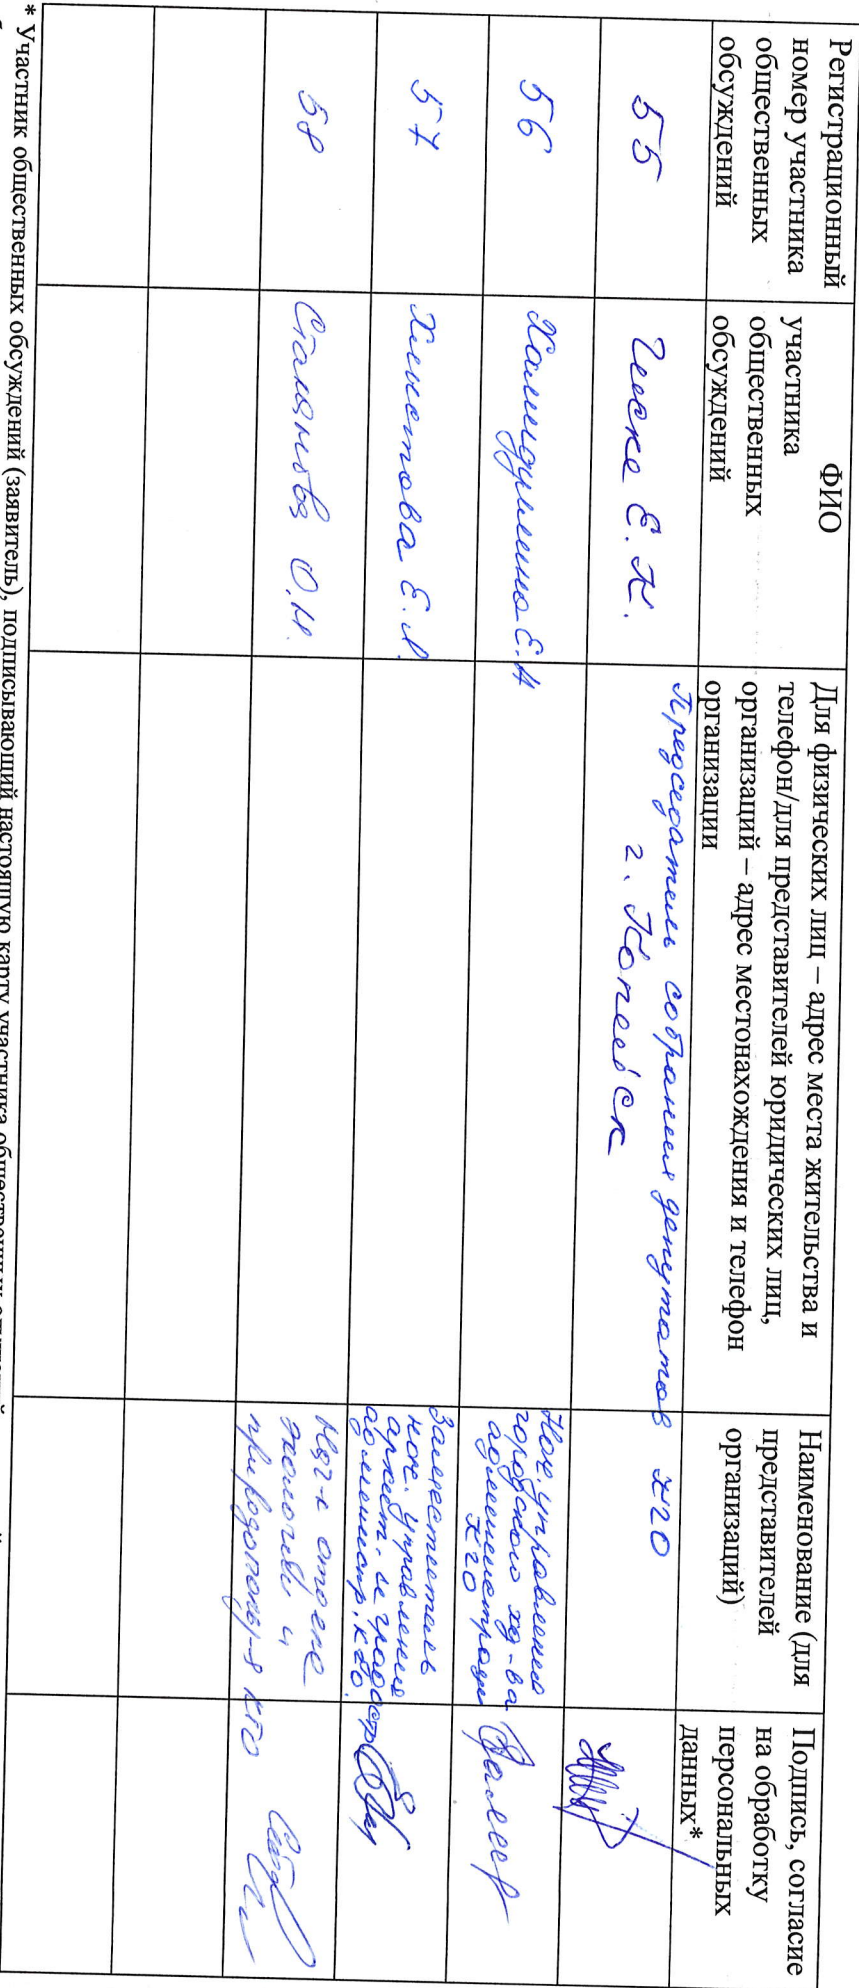 Регистрационный
номер участника
общественных
обсуждений
ФИО
участника
общественных
обсуждений
Для физических лиц – адрес места жительства и
телефон/для представителей юридических лиц,
организаций – адрес местонахождения и телефон
организации
Наименование (для
представителей
организаций)
Подпись, согласие
на обработку
персональных
данных*
55
Гиске Е. К.
Председатель собрания депутатов КГО
г. Копейск
56
Е. Н
Нач. управления
городского хоз-ва
администрации
КГО
57
Хлыстова Е. А.
Заместитель
нач. управления
архит. и градостр
администр. КГО.
58
О. Н.
Нач-к отдела
экологии и
природопольз-я КГО
* Участник общественных обсуждений (заявитель), подписывающий настоящую карту участника общественных